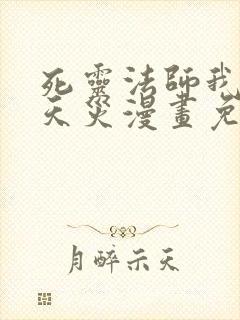 死靈法師我
天災漫畫免
月醉示天